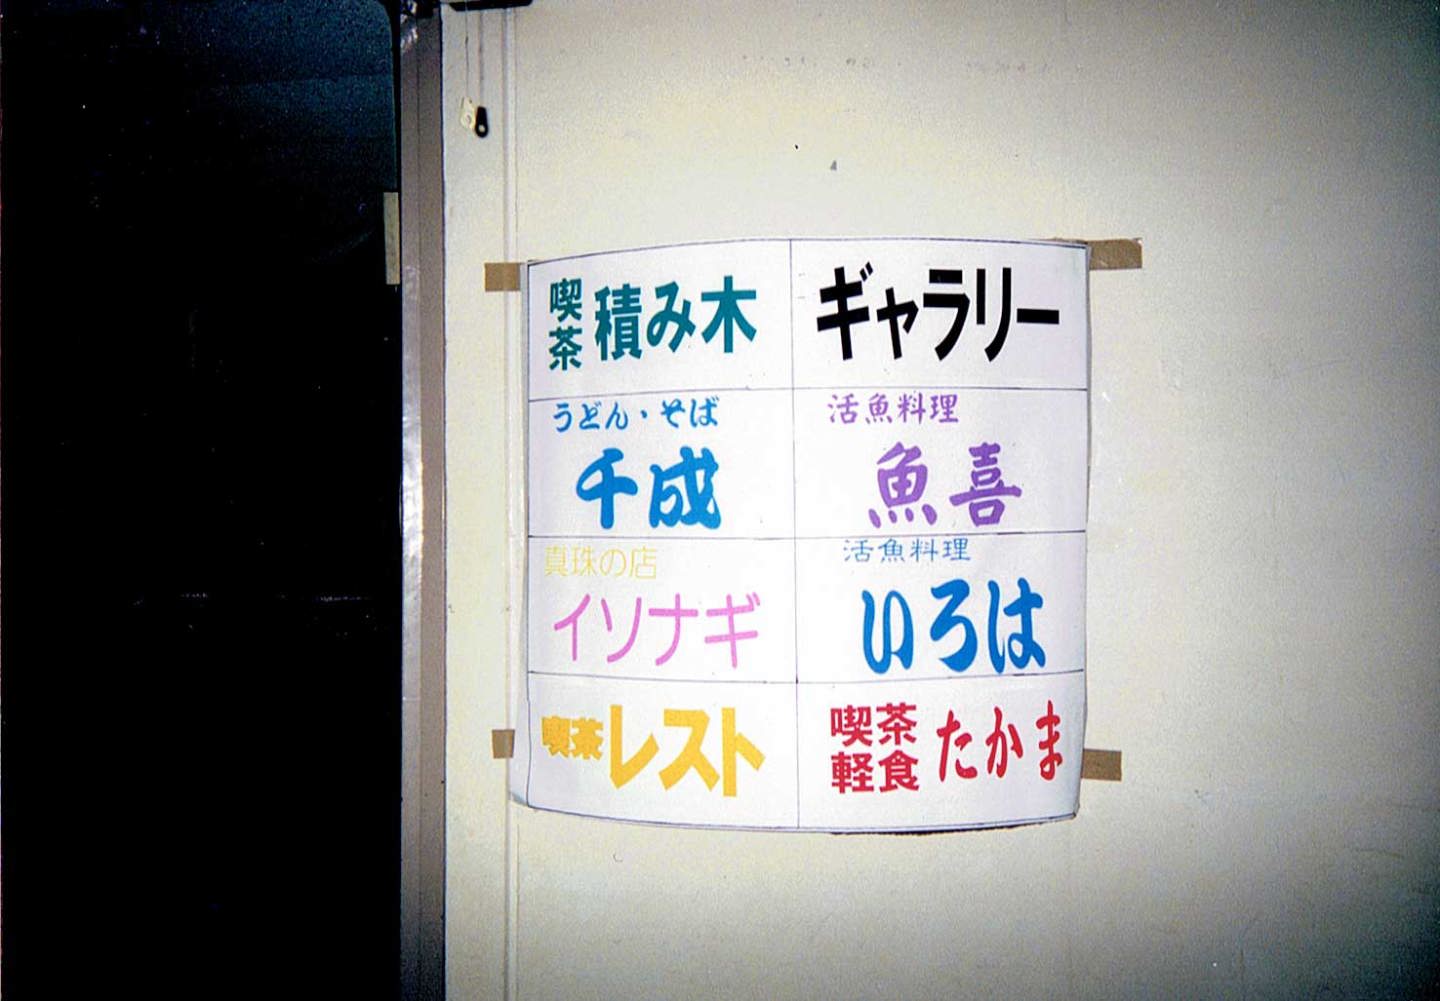 喫茶 積み木
ギャラリー
うどん・そば
千成
活魚料理
魚喜
真珠の店
イソナギ
活魚料理
いろは
喫茶 レスト
喫茶 軽食 たかま